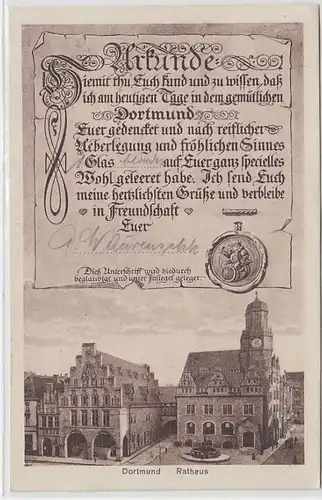 Urkunde
Hiemit thu Euch kund und zu wissen, daß
ich am heutigen Tage in dem gemütlichen
Dortmund
Euer gedencket und nach reiflicher
Ueberlegung und fröhlichen Sinnes
Glas auf Euer ganz specielles
Wohl geleeret habe. Ich send Euch
meine hertzlichsten Grüße und verbleibe
in Freundschaft
Euer
Dies Unterschrift wird hiedurch
beglaubigt und unter Insiegel geleget.
Dortmund Rathaus